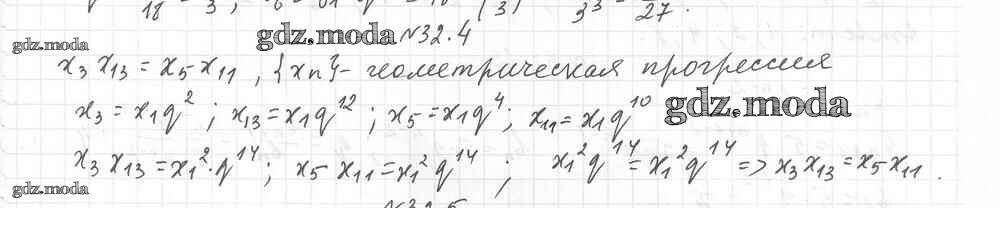 18 = 3 ; (3) 3³ = 27.
gdz.moda
gdz.moda
№32.4
x₃ x₁₃ = x₅ x₁₁ , {xn} - геометрическая прогрессия
x₃ = x₁q² ; x₁₃ = x₁q¹² ; x₅ = x₁q⁴ ; x₁₁ = x₁q¹⁰
gdz.moda
x₃ x₁₃ = x₁² · q¹⁴ ; x₅ x₁₁ = x₁² q¹⁴ ; x₁² q¹⁴ = x₁² q¹⁴ => x₃ x₁₃ = x₅ x₁₁ .
gdz.moda